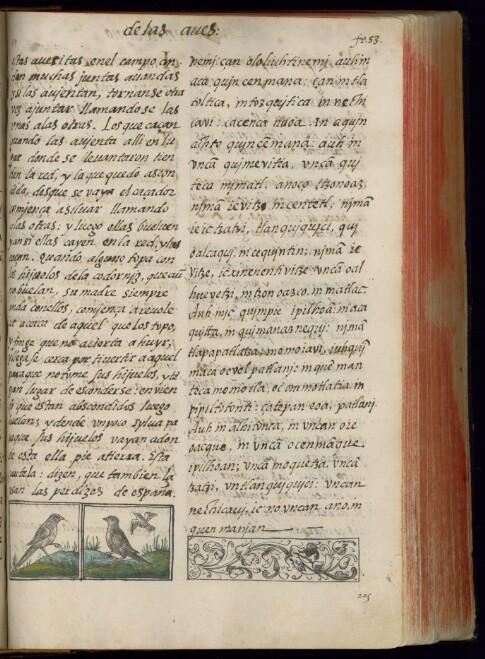 de las aues:
fo. 53.
Estas auezitas, en el campo an
dan muchas juntas auandas
y si las auientan, tornanse otra
vez ajuntar llamandose las
vnas alas otras. Los que caçan
quando las auienta alli en lu
gar donde se leuantaron tien
den la red, y la que quedo ascon
dida, desque se vaya el caçador
comiença asiluar llamando
alas otras: y luego ellas bueluen
y ansi ellas cayen en la red, y las
toman. Quando alguno topa con
los hijuelos dela codorniz, que aun
no buelan, su madre siempre
anda con ellos, comiença areuole
ar acerca de aquel que los topo,
y finge que no acierta a huyr,
y llegase cerca por diuertir a aquel
para que no tome sus hijuelos, y te
gan lugar de esconderse: en vien
do que estan abscondidos luego
buela; y dende vn poco sylua pa
ra que sus hijuelos vayan adon
de esta ella pie atierra. Esta
cautela: dizen, que tambien la
vsan las perdizes de españa.
nemi: çan ololiuhtinemi, auh in
aca quin cenmana: çan mitla
toltica, motzatzitica in nechi
cauj: cacenca nuoa. In aquin
achto quincēmana: auh in
vncā quineuitia, vncā qui
teca in matl: anoço tzonoaz,
njmā ie vitze in centetl: njmā
ie ic tzatzi, tlanquiquici, qui
oalcaquj, in cequintin; njmā ie
vitze, ic xixinentivitze vncā oal
huevetzi, in tzonoazco, in matlac.
Auh injc quimpie ipilhoā: in aca
quitta, in quimanaznequj: njmā
tlapapatlatza; momoiavi, iuhquj
maca ovel patlanj: inquē man
teca momotla, oc on motlatia in
pipiltotonti: çatepan eoa, patlanj.
Auh in aloncuca, in vncan oie
oacque, in vncā ocenmāque,
ipilhoan; vncā moquetza, vncā
tzatzi, vntlanquiquici: vncan
nechicauj, ie no vncan anom
quenmanian
205